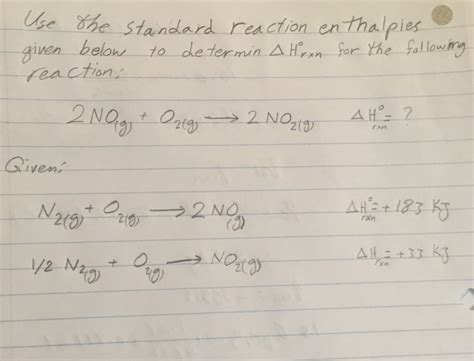 Use the standard reaction enthalpies
given below to determin ΔH°rxn for the following
reaction:
2 NO(g) + O2(g) → 2 NO2(g) ΔH°rxn = ?
Given:
N2(g) + O2(g) → 2 NO(g) ΔH°rxn = +183 KJ
1/2 N2(g) + O2(g) → NO2(g) ΔHrxn = +33 KJ